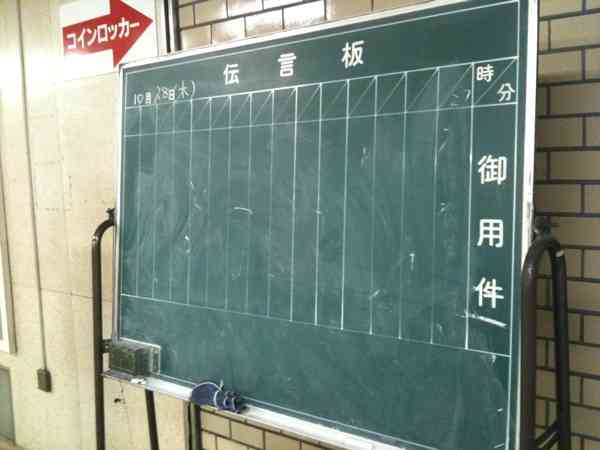 コインロッカー
伝言板
10月28日(木)
時
分
27
御用件